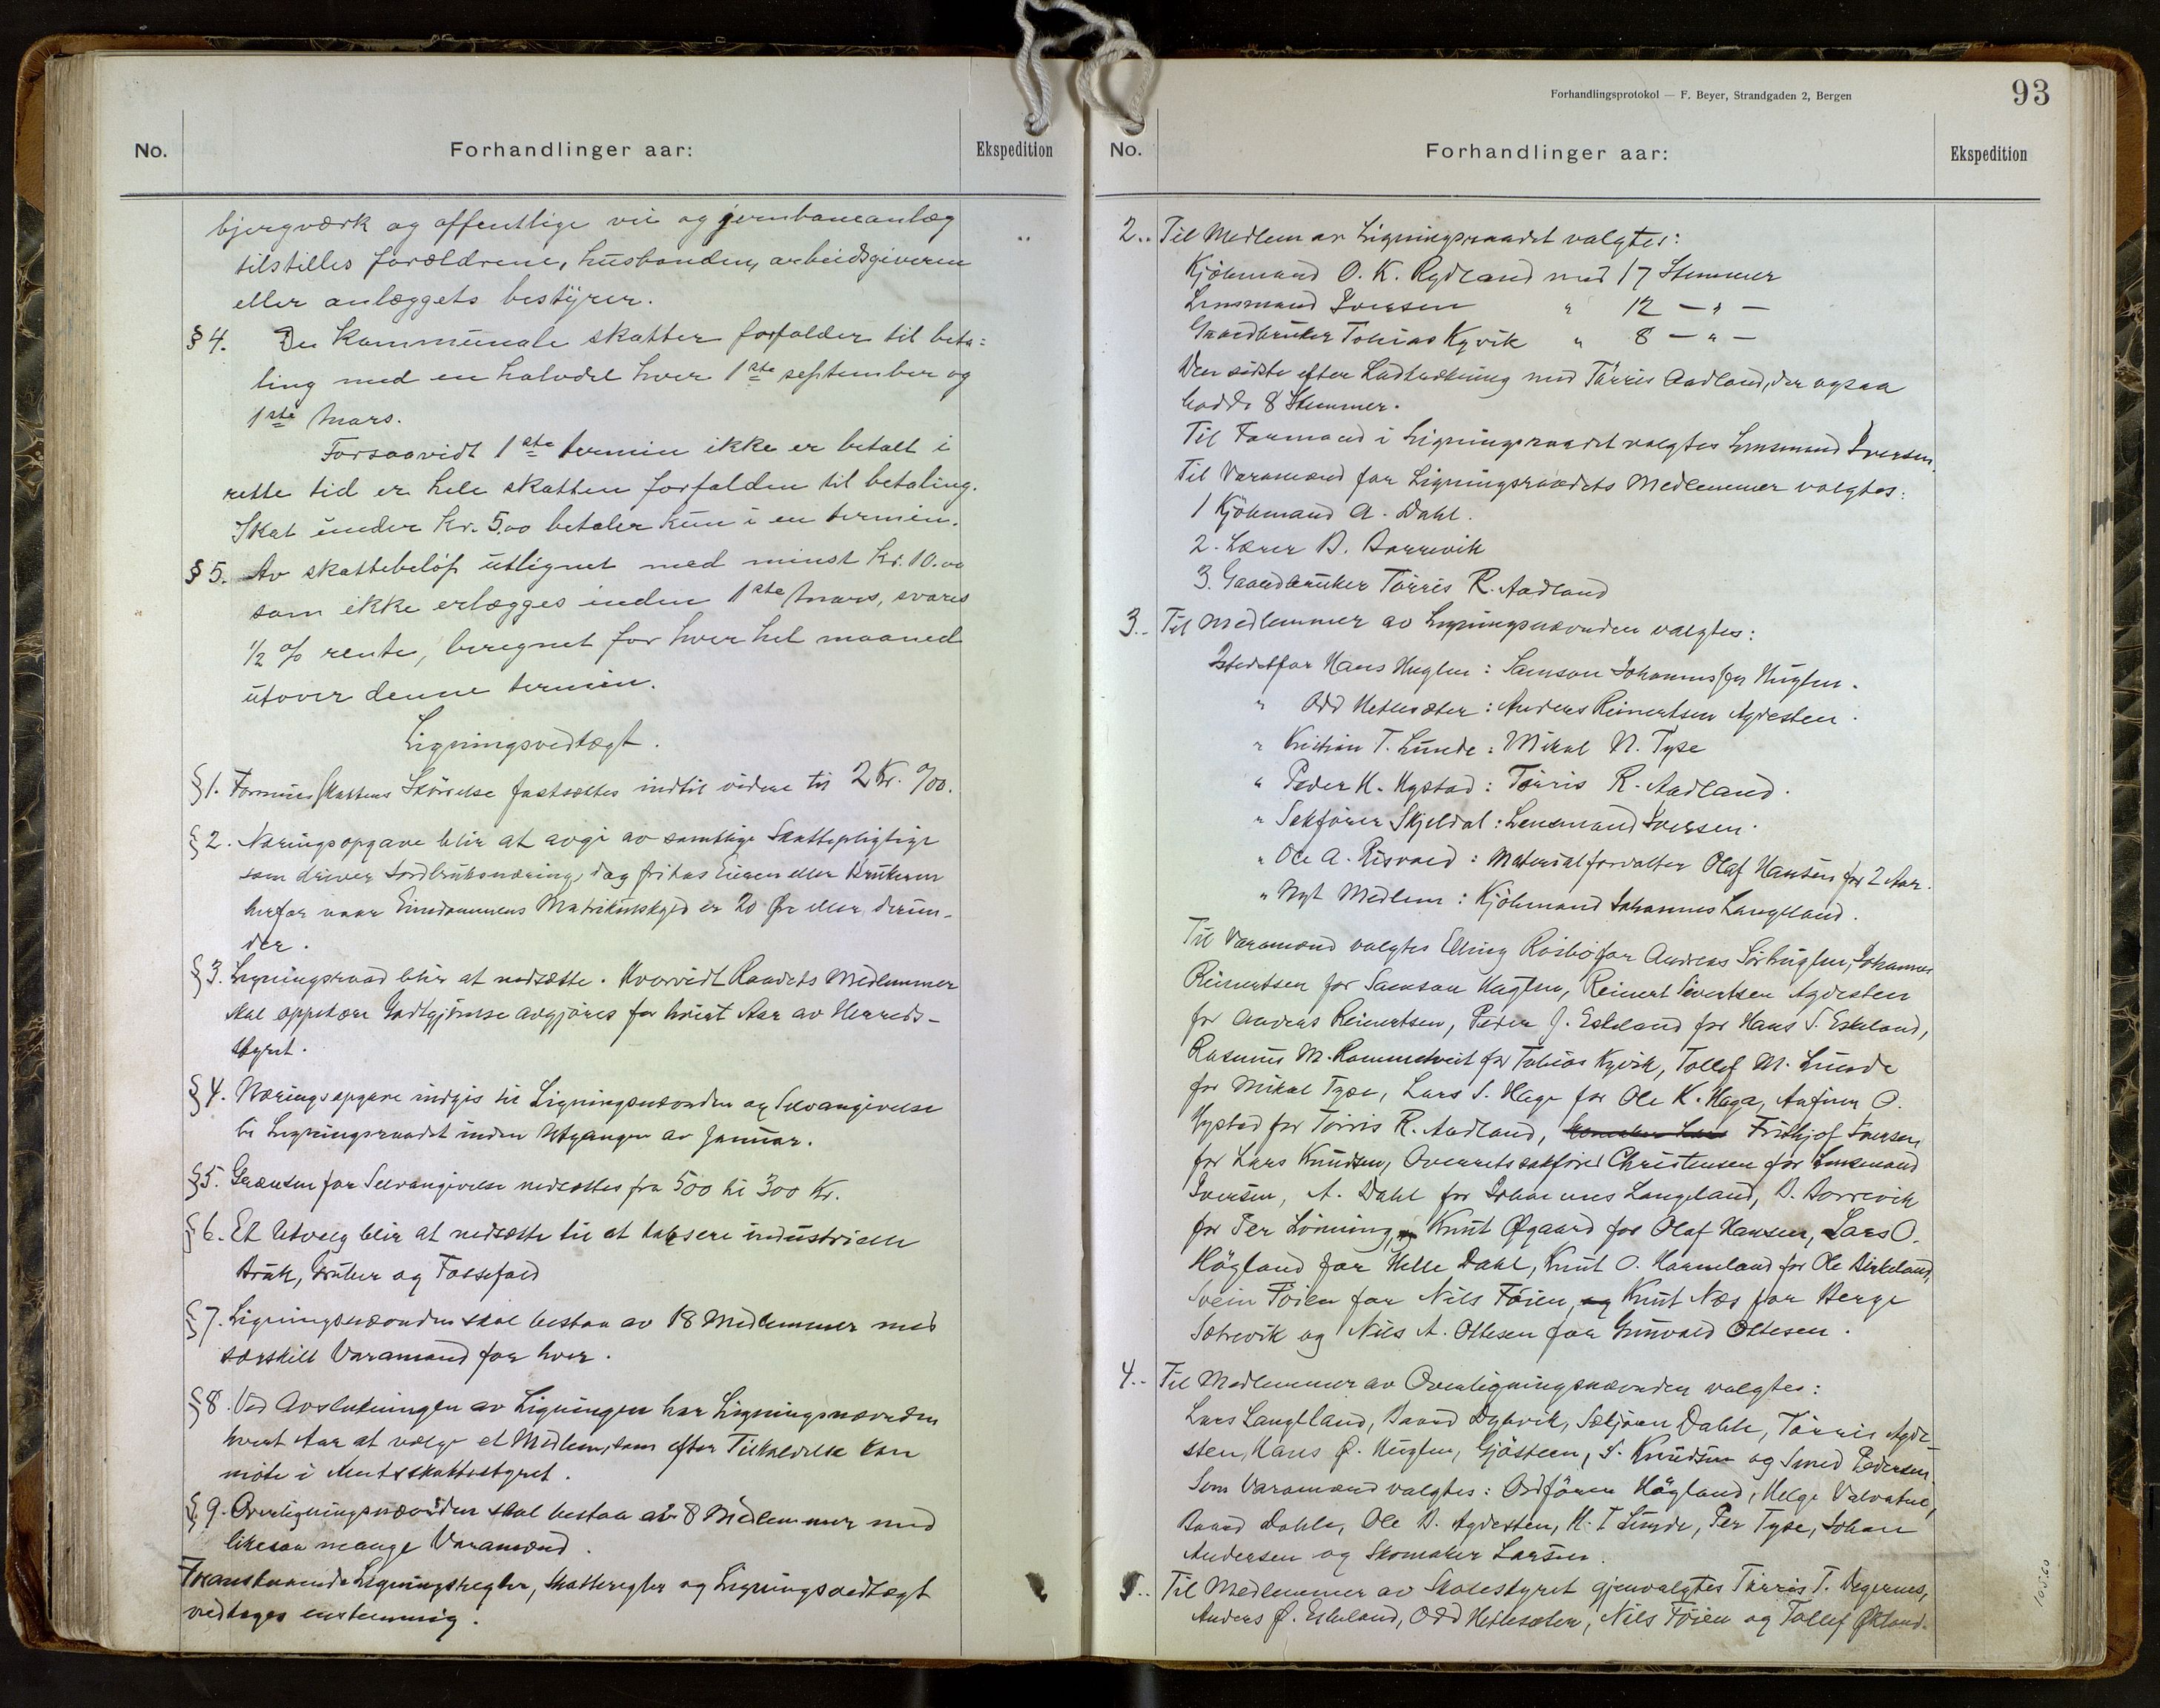 No.
Forhandlinger aar:
Ekspedition
bjergværk og offentlige vei og jernbaneanlæg
tilstilles forældrene, husbonden, arbeidsgiveren
eller anlæggets bestyrer.
§ 4. De kommunale skatter forfalder til beta=
ling med en halvdel hver 1ste september og
1ste mars.
Forsaavidt 1ste termin ikke er betalt i
rette tid er hele skatten forfalden til betaling.
Skat under kr. 5.00 betaler kun i en termin.
§ 5. Av skattebeløp utlignet med minst kr. 10.00
som ikke erlægges inden 1ste mars, svares
1/2 % rente, beregnet for hver hel maaned
utover denne termin.
Ligningsvedtægt.
§ 1. Formuesskattens Størrelse fastsættes indtil videre til 2 Kr. o/oo.
§ 2. Næringsopgave blir at avgi av samtlige Skattepligtige
som driver Jordbruksnæring, dog fritas Eieren eller Brukeren
herfor naar Eiendommens Matrikulskyld er 20 Øre eller derun-
der.
§ 3. Ligningsraad blir at nedsætte. Hvorvidt Raadets Medlemmer
skal oppebære Godtgjörelse avgjöres for hvert Aar av Herreds-
styret.
§ 4. Næringsopgave indgis til Ligningsnævnden og Selvangivelse
til Ligningsraadet inden Utgangen av Januar.
§ 5. Grænsen for Selvangivelse nedsættes fra 500 til 300 Kr.
§ 6. Et Utvalg blir at nedsætte til at taksere industrielle
Bruk, Gruber og Fossefald
§ 7. Ligningsnævnden skal bestaa av 18 Medlemmer med
særskilt Varamand for hver.
§ 8. Ved Avslutningen av Ligningen har Ligningsnævnden
hvert Aar at vælge et Medlem, som efter Tilkaldelse kan
møte i Amtsskattestyret.
§ 9. Overligningsnævnden skal bestaa av 8 Medlemmer med
likesaa mange Varamænd.
Foranstaaende Ligningsregler, Skatteregler og Ligningsvedtægt
vedtages enstemmig.
Forhandlingsprotokol — F. Beyer, Strandgaden 2, Bergen
93
No.
Forhandlinger aar:
Ekspedition
2.. Til Medlem av Ligningsraadet valgtes:
Kjöbmand O. K. Rydland med 17 Stemmer
Lensmand Iversen " 12 — " —
Gaardbruker Tobias Kyvik " 8 — " —
Den sidste efter Lodtrækning med Tørris Aadland, der ogsaa
hadde 8 Stemmer.
Til Formand i Ligningsraadet valgtes Lensmand Iversen.
Til Varamænd for Ligningsraadets Medlemmer valgtes:
1 Kjöbmand A. Dahl.
2. Lærer B. Borrevik
3. Gaardbruker Törris R. Aadland
3.. Til Medlemmer av Ligningsnævnden valgtes:
Istedetfor Hans Huglen: Samson Johannes sen Huglen.
" Odd Hetlesæter: Anders Reinertsen Agdesten.
" Kristian T. Lunde: Mikal N. Tyse
" Peder H. Hystad: Törris R. Aadland.
" Sakfører Skjeldal: Lensmand Iversen.
" Ole A. Risvold: Materialforvalter Olaf Hansen for 2 Aar.
" Nyt Medlem: Kjöbmand Johannes Langeland.
Til Varamænd valgtes Elling Rosbø for Andreas Sörhuglen, Johannes
Reinertsen for Samson Huglen, Reinert Sivertsen Agdesten
for Anders Reinertsen, Peder J. Eskeland for Hans S. Eskeland,
Rasmus M. Rommetveit for Tobias Kyvik, Tollef M. Lunde
for Mikal Tyse, Lars S. Hage for Ole K. Haga, Anfinn O.
Hystad for Törris R. Aadland, Skomaker Lars Fridtjof Iversen
for Lars Knudsen, Overretssakfører Christensen for Lensmand
Iversen, A. Dahl for Johannes Langeland, B. Borrevik
for Per Lönning, og Knut Øgaard for Olaf Hansen, Lars O.
Högland for Helle Dahl, Knut O. Hammeland for Ole Birkeland,
Svein Föien for Nils Föien, og Knut Næs for Berge
Sætrevik og Nils A. Ottesen for Gunvald Ottesen.
4.. Til Medlemmer av Overligningsnævnden valgtes:
Lars Langeland, Baard Dybvik, Dahle, Törris Agde-
sten, Hans Ø. Huglen, Gjösteen, S. Knudsen og Smed Pedersen.
Som Varamænd valgtes: Ordfören Högland, Helge Valvatne,
Baard Dahle, Ole B. Agdesten, H. T Lunde, Per Tyse, Johan
Andersen og Skomaker Larsen.
5.. Til Medlemmer av Skolestyret gjenvalgtes Törris T. Vegernes,
Anders Ø. Eskeland, Odd Hetlesæter, Nils Föien og Tollef Økland.